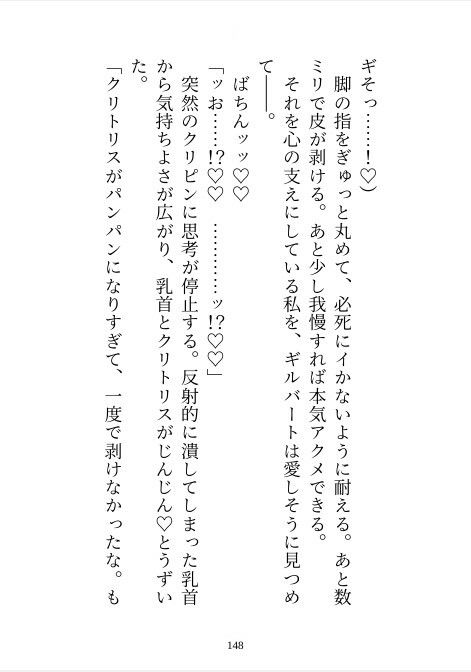 ギそっ……！♡）
　脚の指をぎゅっと丸めて、必死にイかないように耐える。あと数
ミリで皮が剥ける。あと少し我慢すれば本気アクメできる。
　それを心の支えにしている私を、ギルバートは愛しそうに見つめ
て――。
　ばちんッッ♡♡
「ッお……!?♡♡　…………ッ!?♡♡」
　突然のクリピンに思考が停止する。反射的に潰してしまった乳首
から気持ちよさが広がり、乳首とクリトリスがじんじん♡とうずい
た。
「クリトリスがパンパンになりすぎて、一度で剥けなかったな。も
148